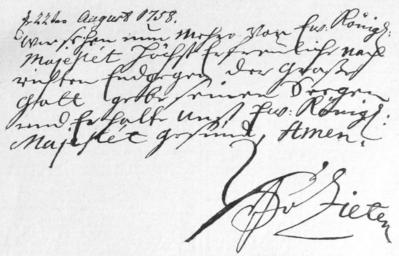 d 22ten August 1758.
Wir sehen nun Mehro von Ew. Königl:
Majestét Höchst Erfreuliche nach
richten Endgegen der Große
Gott gebe seinen Seegen
und Erhalte Unß Ew. Königl:
Majestét gesund, Amen.
Zieten